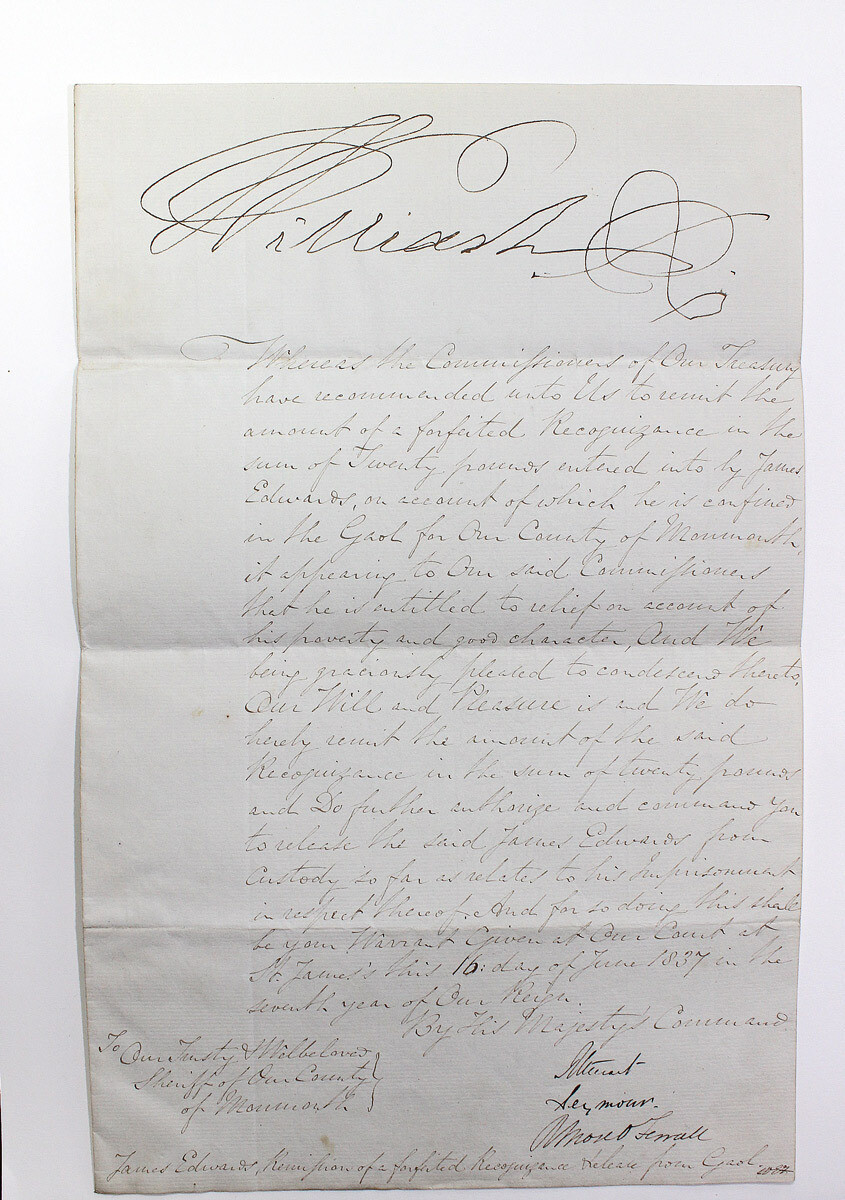 William R
Whereas the Commissioners of Our Treasury
have recommended unto Us to remit the
amount of a forfeited Recognizance in the
sum of Twenty pounds entered into by James
Edwards, on account of which he is confined
in the Gaol for Our County of Monmouth,
it appearing to Our said Commissioners
that he is entitled to relief on account of
his poverty and good character, And We
being graciously pleased to condescend thereto,
Our Will and Pleasure is and We do
hereby remit the amount of the said
Recognizance in the sum of twenty pounds
and Do further authorize and command you
to release the said James Edwards from
Custody so far as relates to his Imprisonment
in respect thereof. And for so doing this shall
be your Warrant Given at Our Court at
St. James's this 16: day of June 1837 in the
seventh year of Our Reign.
By His Majesty's Command
To Our Trusty & Welbeloved
Sheriff of Our County
of Monmouth
Rt Steuart
Seymour.
R More O'Ferrall
James Edwards, Remission of a forfeited Recognizance & Release from Gaol.